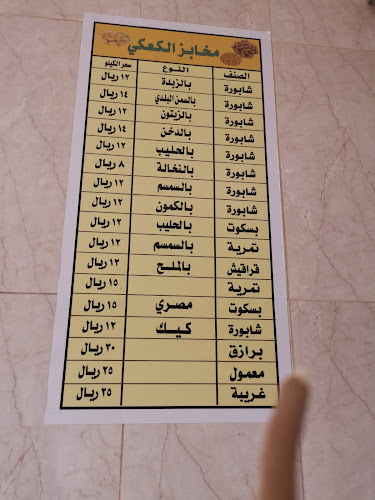 مخابز الكعكي
الصنف النوع سعر الكيلو
شابورة بالزبدة ١٢ ريال
شابورة بالسمن البلدي ١٤ ريال
شابورة بالزيتون ١٢ ريال
شابورة بالدخن ١٤ ريال
شابورة بالحليب ١٢ ريال
شابورة بالنخالة ٨ ريال
شابورة بالسمسم ١٢ ريال
شابورة بالكمون ١٢ ريال
بسكوت بالحليب ١٢ ريال
تمرية بالسمسم ١٢ ريال
قراقيش بالملح ١٢ ريال
تمرية ١٥ ريال
بسكوت مصري ١٥ ريال
شابورة كيك ١٢ ريال
برازق ٣٠ ريال
معمول ٢٥ ريال
غريبة ٢٥ ريال